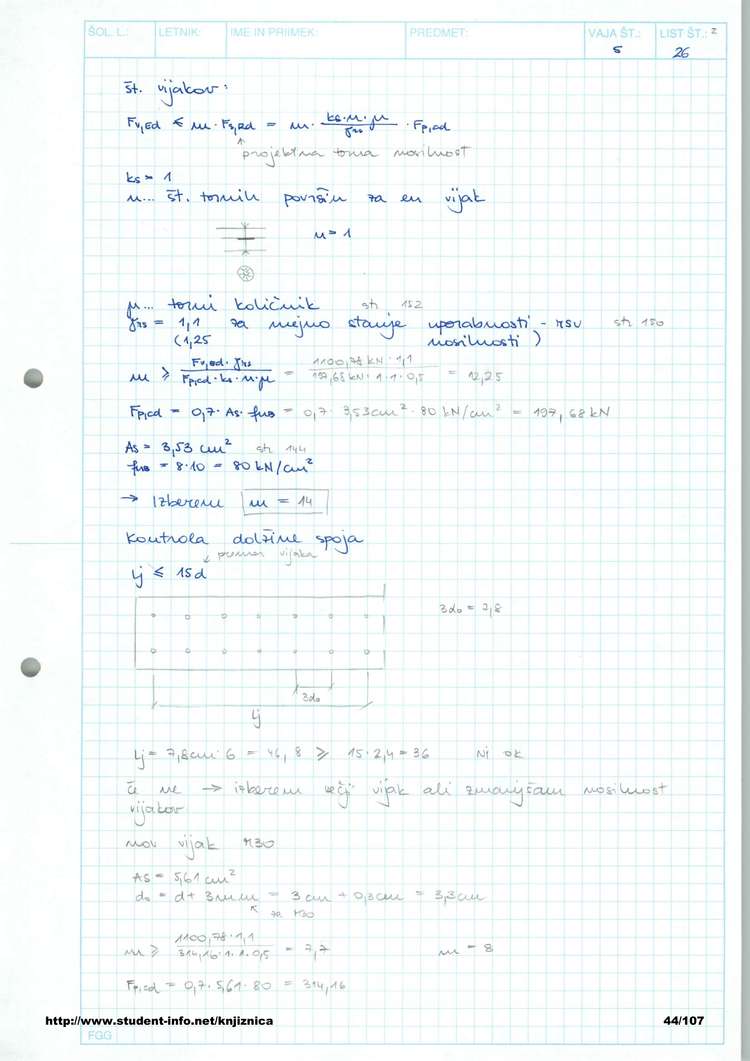 ŠOL. L.: LETNIK: IME IN PRIIMEK: PREDMET: VAJA ŠT.: 5 LIST ŠT.: 2 26
št. vijakov:
Fv,Ed ≤ m · Fs,Rd = m · ks·n·μ / γMs · Fp,Cd
projektna torna nosilnost
ks = 1
n... št. tornih površin za en vijak
n = 1
μ... torni količnik str 152
γMs = 1,1 za mejno stanje uporabnosti - MSU str 150
(1,25 nosilnosti)
m ≥ Fv,Ed · γMs / Fp,Cd · ks · n · μ = 1100,78 kN · 1,1 / 197,68 kN · 1 · 1 · 0,5 = 12,25
Fp,Cd = 0,7 · As · fub = 0,7 · 3,53 cm² · 80 kN/cm² = 197,68 kN
As = 3,53 cm² str 144
fub = 8·10 = 80 kN/cm²
→ Izberem m = 14
Kontrola dolžine spoja
premer vijaka
Lj ≤ 15d
3d₀ = 7,8
3d₀
Lj
Lj = 7,8cm · 6 = 46,8 ≥ 15 · 2,4 = 36 Ni ok
če ne → izberem večji vijak ali zmanjšam nosilnost
vijakov
nov vijak M30
As = 5,61 cm²
d₀ = d + 3mm = 3 cm + 0,3cm = 3,3cm
za M30
m ≥ 1100,78 · 1,1 / 314,16 · 1 · 1 · 0,5 = 7,7 m = 8
Fp,Cd = 0,7 · 5,61 · 80 = 314,16
http://www.student-info.net/knjiznica 44/107
FGG